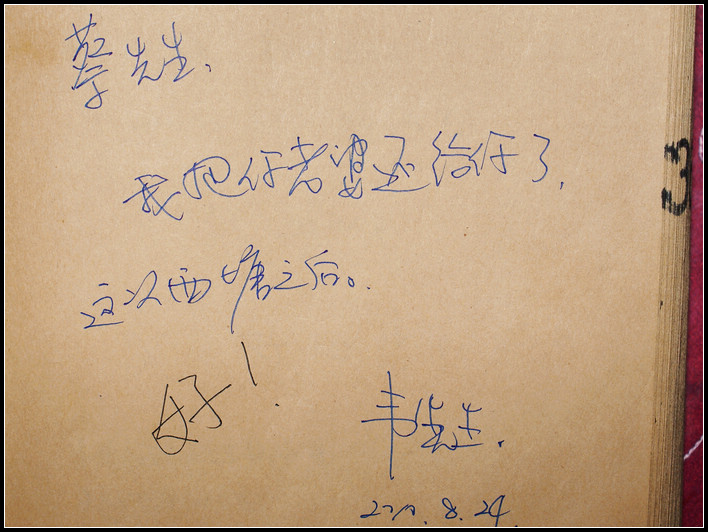 蔡先生、
我把你老婆还给你了,
这次西塘之后。
好!
韦先生.
2010.8.24
3